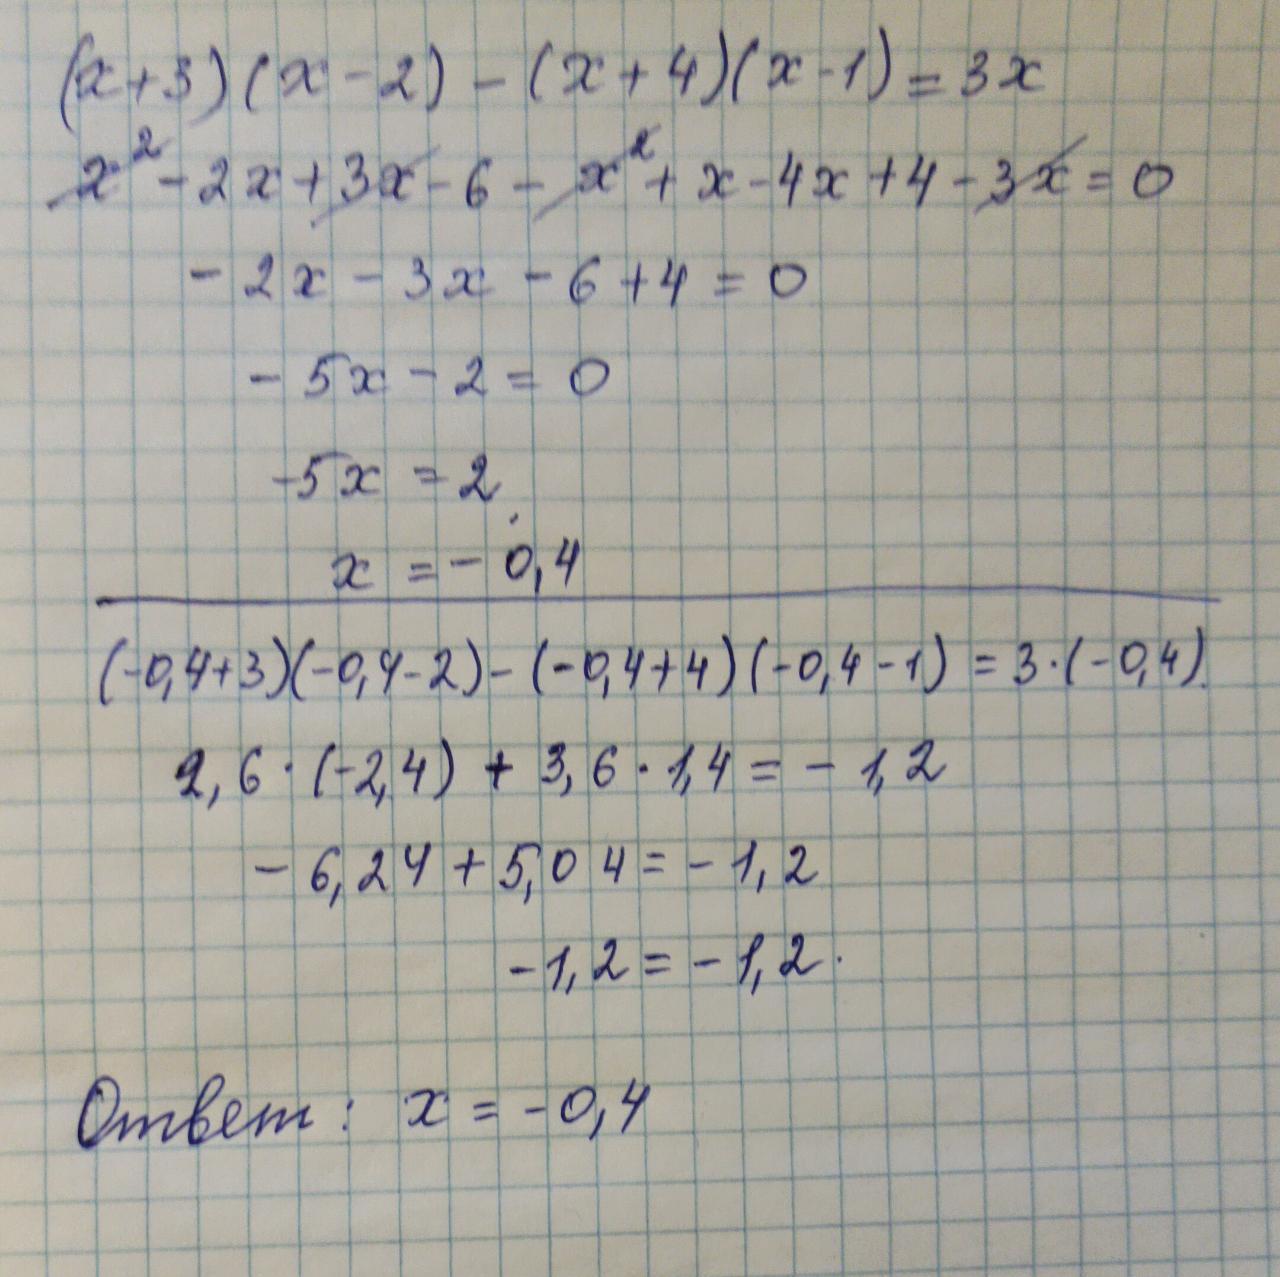 (x+3)(x-2)-(x+4)(x-1)=3x
x²-2x+3x-6-x²+x-4x+4-3x=0
-2x-3x-6+4=0
-5x-2=0
-5x=2
x=-0,4
(-0,4+3)(-0,4-2)-(-0,4+4)(-0,4-1)=3·(-0,4).
2,6·(-2,4)+3,6·1,4=-1,2
-6,24+5,04=-1,2
-1,2=-1,2.
Ответ: x=-0,4